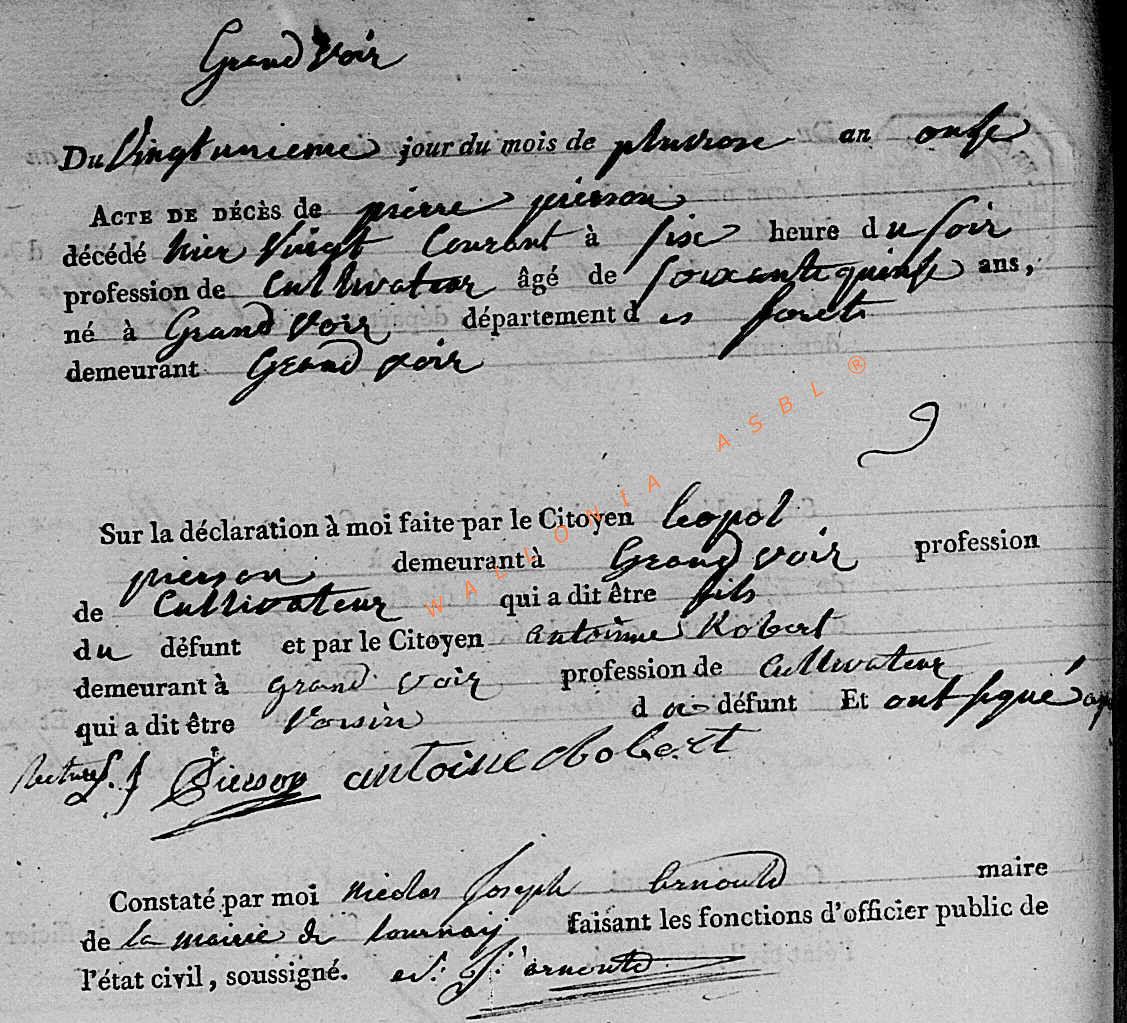 Grand voir
Du Vingtunieme jour du mois de pluviose an onse
ACTE DE DÉCÈS de pierre pierson
décédé hier Vingt Courant à sise heure du soir
profession de Cultivateur âgé de soixantequinse ans,
né à Grand voir département des forets
demeurant Grand voir
Sur la déclaration à moi faite par le Citoyen Leopol
pierson demeurant à Grand voir profession
de Cultivateur qui a dit être fils
du défunt et par le Citoyen antoinne Robert
demeurant à grand voir profession de Cultivateur
qui a dit être Voisin du défunt Et ont signé ap
lectures. Pierson antoine Robert
Constaté par moi nicolas Joseph arnould maire
de la mairie de tournay faisant les fonctions d'officier public de
l'état civil, soussigné. N: J: arnould
WALLONIA ASBL ®